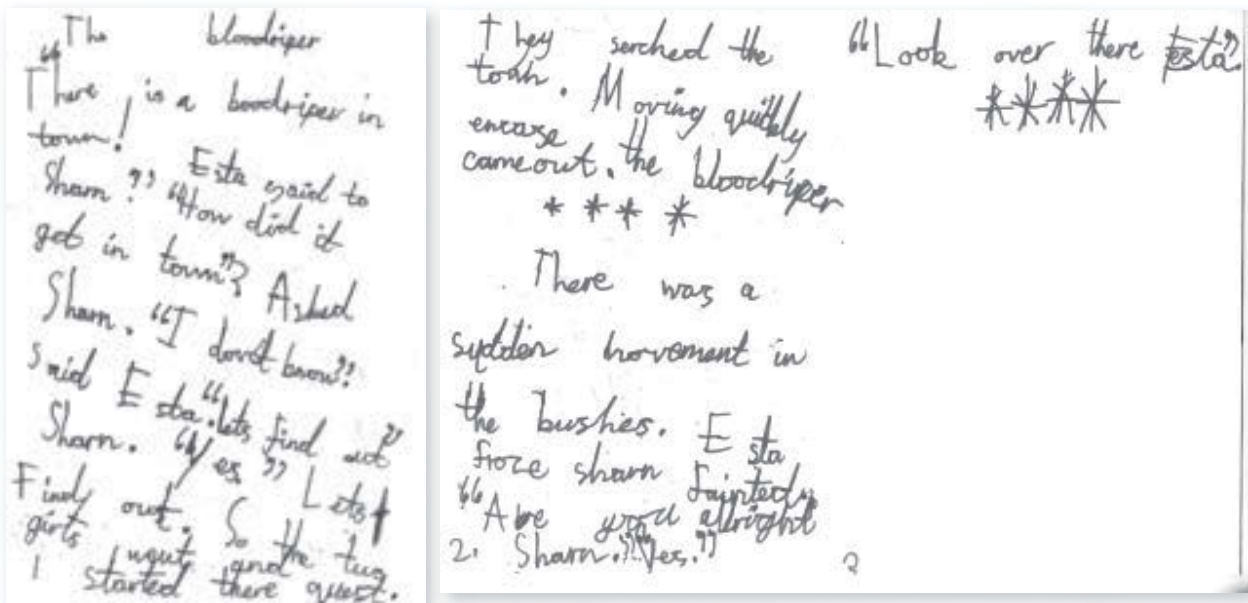 The bloodriper
"There is a boodriper in
town! Esta said to
Sharn?" "How did it
get in town"? Asked
Sharn. "I dovet know".
said Esta. "lets find out"
Sharn. "Yes" Lets
Find out. So the two
girts wout and
1 started there quest.
They serched the
toah. Moving quikly
encase the bloodriper
cameout.
* * * *
There was a
sudden movement in
the bushies. Esta
froze sharn fainterly
"Are you allright
2. Sharn."" Yes."
"Look over there Esta".
* * * *